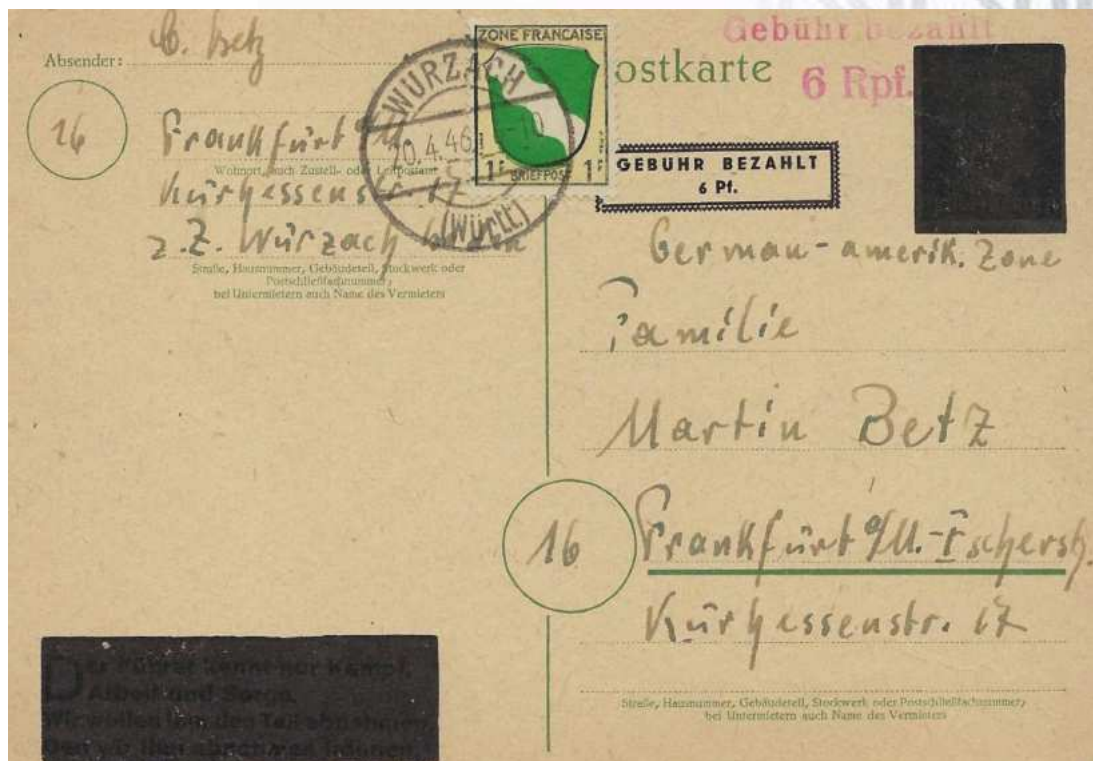 Absender: C. Betz
16
Frankfurt a/M
Wohnort, auch Zustell- oder Leitpostamt
Kurhessenstr. 17
z. Z. Wurzach
Straße, Hausnummer, Gebäudeteil, Stockwerk oder
Postschließfachnummer;
bei Untermietern auch Name des Vermieters
WURZACH
20.4.46 -10
(WÜRTT)
ZONE FRANCAISE
1F BRIEFPOST 1F
ostkarte
Gebühr bezahlt
6 Rpf.
GEBÜHR BEZAHLT
6 Pf.
German-amerik. Zone
Familie
Martin Betz
16
Frankfurt a/M.-Eschersh.
Kurhessenstr. 17
Straße, Hausnummer, Gebäudeteil, Stockwerk oder Postschließfachnummer;
bei Untermietern auch Name des Vermieters
Der Führer kennt nur Kampf,
Arbeit und Sorge.
Wir wollen ihm den Teil abnehmen,
den wir ihm abnehmen können.